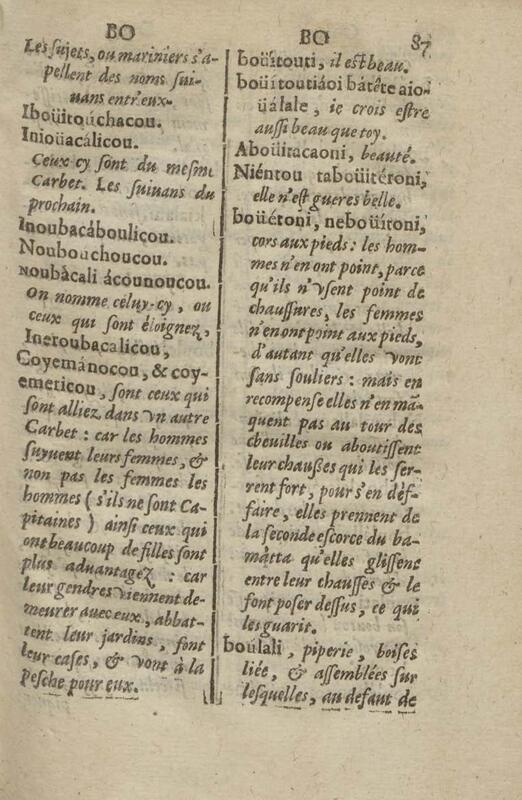 BO
Les sujets, ou mariniers s'a-
pellent des noms sui-
uans entr'eux.
Iboüitouchacou.
Inioüacálicou.
Ceux cy sont du mesme
Carbet. Les suiuans du
prochain.
Inoubacáboulicou.
Noubouchoucou.
Noubácali ácounoucou.
On nomme céluy-cy, ou
ceux qui sont éloignez,
Inetoubacalicou,
Coyemánocou, & coy-
emericou, sont ceux qui
sont alliez dans vn autre
Carbet : car les hommes
suyuent leurs femmes, &
non pas les femmes les
hommes ( s'ils ne sont Ca-
pitaines ) ainsi ceux qui
ont beaucoup de filles sont
plus aduantagez : car
leur gendres viennent de-
meurer auec eux, abbat-
tent leur jardins, font
leur cases, & vont à la
pesche pour eux.
BO 87
boüitouti, il est beau.
boüitoutiáoi bátête aio-
üálale, ie crois estre
aussi beau que toy.
Aboüitacaoni, beauté.
Niéntou taboüitéroni,
elle n'est gueres belle.
boüétoni, neboüítoni,
cors aux pieds : les hom-
mes n'en ont point, parce
qu'ils n'vsent point de
chaussures, les femmes
n'en ont point aux pieds,
d'autant qu'elles vont
sans souliers : mais en
recompense elles n'en mã-
quent pas au tour des
cheuilles ou aboutissent
leur chausses qui les ser-
rent fort, pour s'en déf-
faire, elles prennent de
la seconde escorce du ba-
mátta qu'elles glissent
entre leur chausses & le
font poser dessus, ce qui
les guarit.
boulali, piperie, boises
liée, & assemblées sur
lesquelles, au defaut de